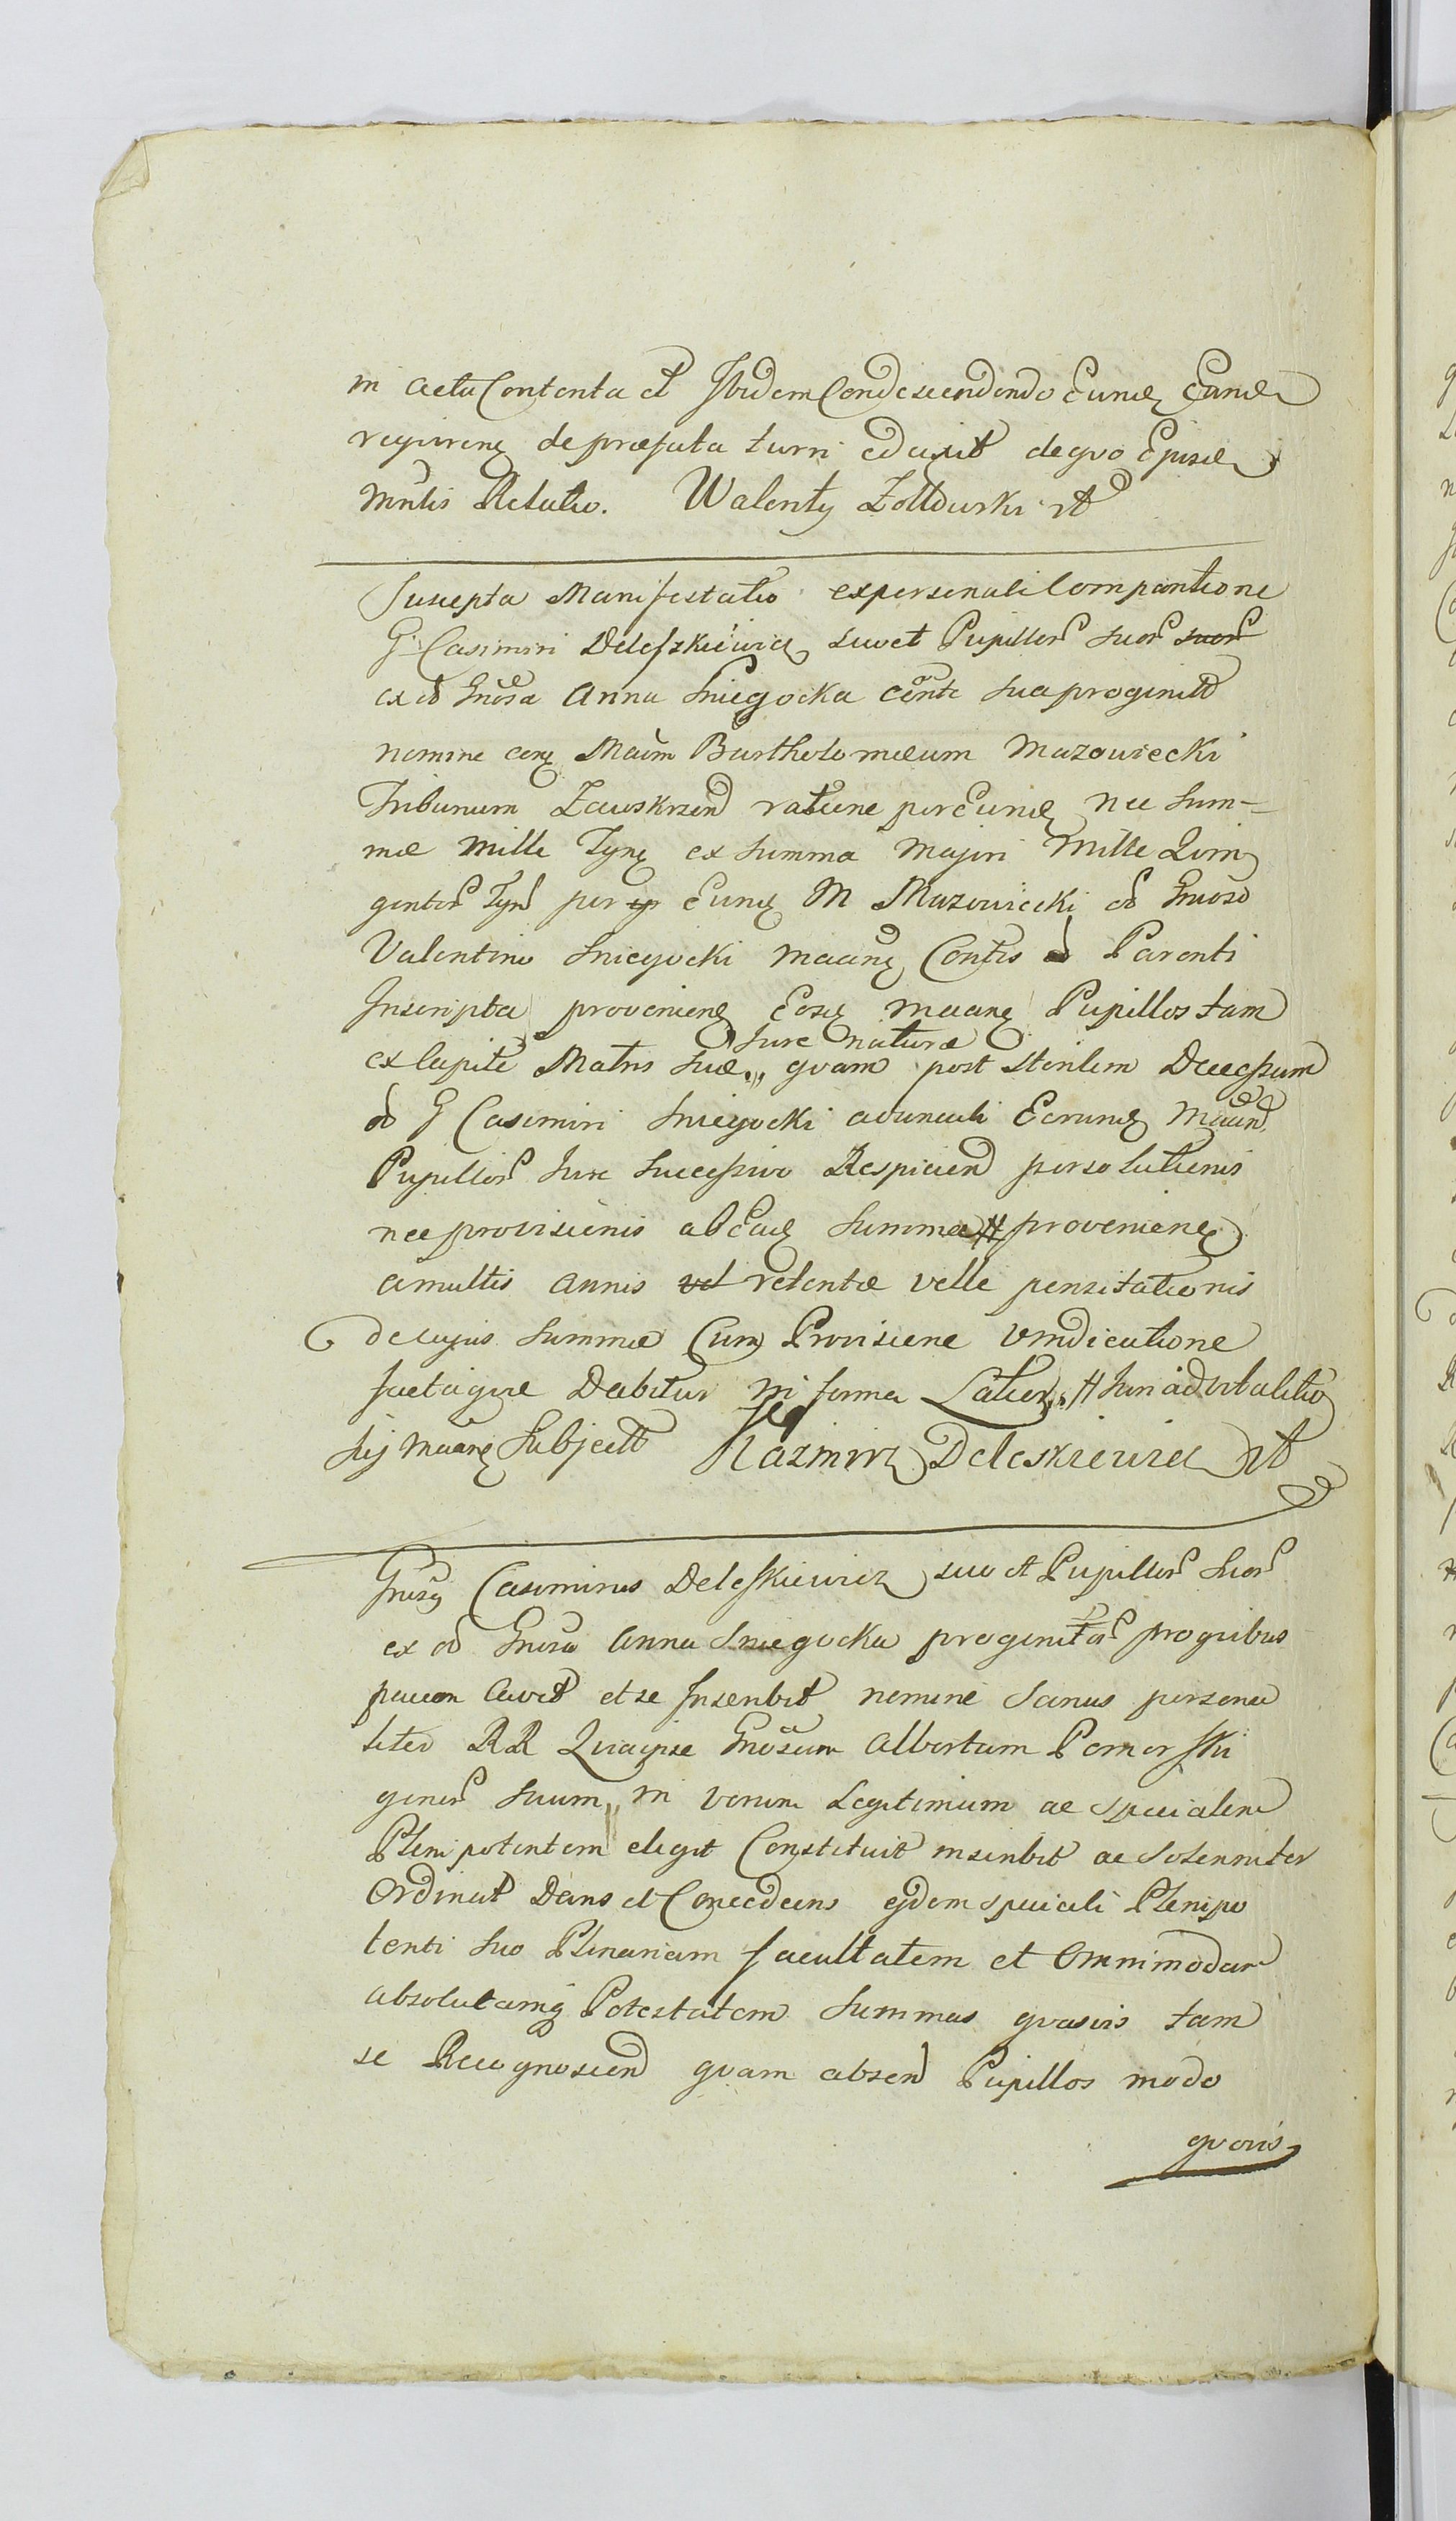 in actu Contenta et Ibidem Condescendendo Eundę Eandę
requirenę de præfata turri eduxit de quo Epusdę
mntis Relatio. Walenty Zołtowski rt
Suscepta Manifestatio ex personali Comparitione
G Casimiri Deleszkiewicz suo et Pupillor suor suor
ex od Gnosa Anna Sniegocka Conte sua progenitt
nomine corę Macim Bartholomæum Mazowiecki
Tribunum Zawskrzen ratione per Eundę nec Sum-
mæ Mille Tynę ex Summa Majori Mille Quin
gentor Tyn per ip Eundę M Mazowiecki od Gnoso
Valentino Sniegocki maanę Contis ad Parenti
Inscripta provenienę Eosdę maanę Pupillos tam
ex Capite Matris suæ „ Jure naturæ quam post sterilem Decessum
od G Casimiri Sniegocki avunculi Eorundę Maan
Pupillor Jure Successivo Respicien persolutionis
nec provisionis ab Eadę Summa # provenienę
a multis annis vel retentæ velle pensitationis
de cujus Summæ Cum Provisione vindicatione
fact agere Debitur in forma Latiorę „ # Juri advitalitio
sij maanę Subjectt Kazmirz Deleskiewicz rt
Gnosę Casimirus Deleskiewicz suo et Pupillor suor
ex od Gnosa Anna Sniegocka progenitor progribus
pacem Cavit et se Inscribit nomine Sanus persona
liter RR Quaipse Gnosum Albertum Pomorski
gener suum „ in verum Legitimum ac specialem
Plenipotentem elegit Constituit inscribit ac Solenniter
Ordinat Dans et Concedens ejdem speciali Plenipo
tenti suo Plenariam facultatem et Omnimodam
absolutamq Potestatem Summas quasvis tam
se Recognoscen quam absen Pupillos modo
quovis